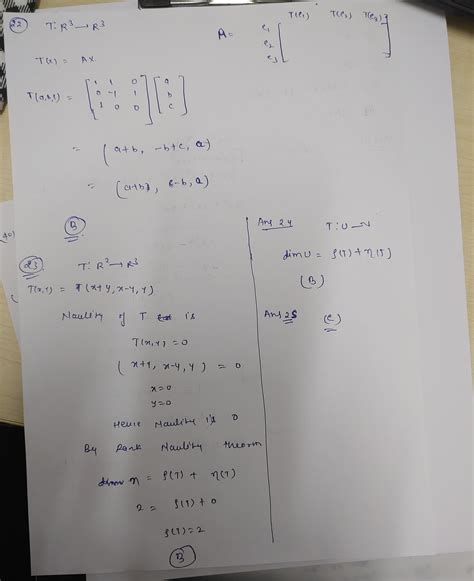 22 T: R³ → R³
A = e₁ e₂ e₃ [ T(e₁) T(e₂) T(e₃) ]
T(x) = Ax
T(a,b,c) = [ 1 1 0
0 -1 1
1 0 0 ] [ a
b
c ]
= (a+b, -b+c, a)
= (a+b, c-b, a)
(B)
23 T: R² → R³
T(x,y) = (x+y, x-y, y)
Naulity of T is
T(x,y) = 0
(x+y, x-y, y) = 0
x=0
y=0
Hence Naulity is 0
By Rank Naulity theorem
n = ρ(T) + η(T)
2 = ρ(T) + 0
ρ(T) = 2
(B)
Ans 24 T: U → V
dim U = ρ(T) + η(T)
(B)
Ans 25 (C)